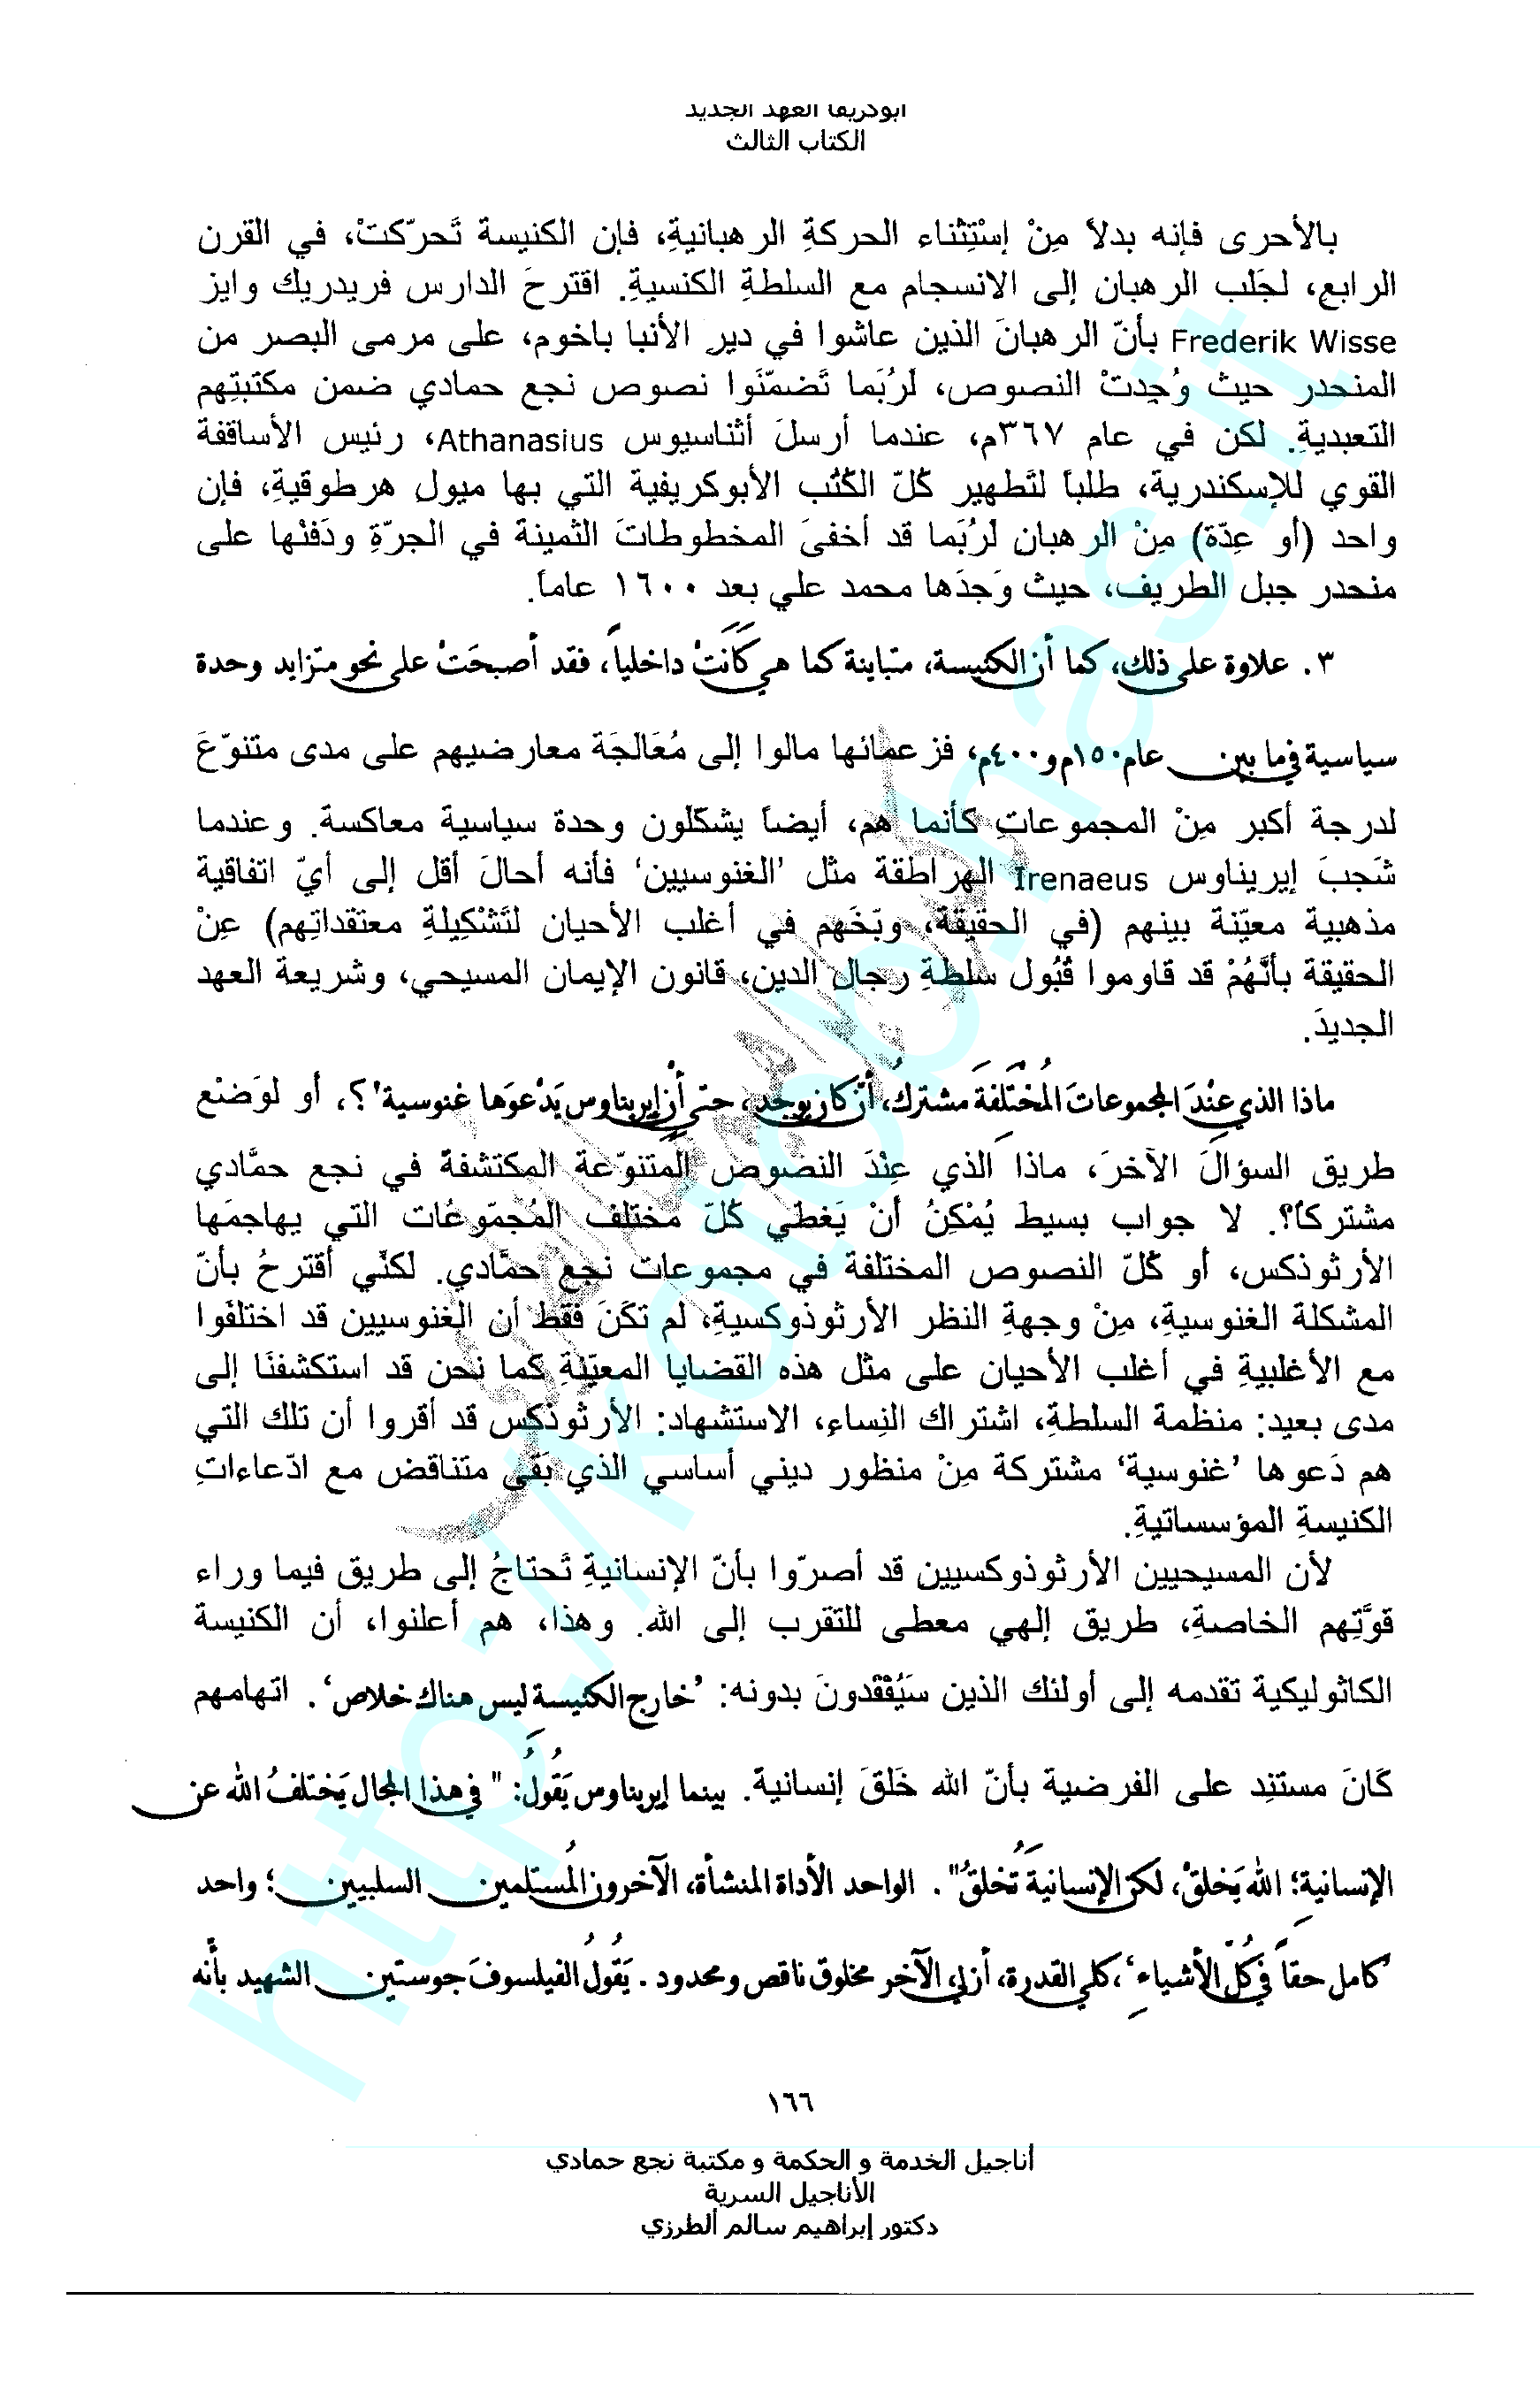 ابوكريفا العهد الجديد
الكتاب الثالث
بالأحرى فإنه بدلاً مِنْ إسْتِثناء الحركةِ الرهبانيةِ، فإن الكنيسة تَحرّكتْ، في القرن
الرابع، لجَلب الرهبان إلى الانسجام مع السلطةِ الكنسيةِ. اقترحَ الدارس فريدريك وايز
Frederik Wisse بأنّ الرهبانَ الذين عاشوا في ديرِ الأنبا باخوم، على مرمى البصر من
المنحدر حيث وُجِدتْ النصوص، لَرُبَما تَضمّنَوا نصوص نجع حمادي ضمن مكتبتِهم
التعبديةِ. لكن في عام ٣٦٧م، عندما أرسلَ أثناسيوس Athanasius، رئيس الأساقفة
القوي للإسكندرية، طلباً لتَطهير كُلّ الكُتُب الأبوكريفية التي بها ميول هرطوقيةِ، فإن
واحد (أو عِدّة) مِنْ الرهبان لَرُبَما قد أخفىَ المخطوطاتَ الثمينة في الجرّةِ ودَفنْها على
منحدر جبل الطريف، حيث وَجدَها محمد علي بعد ١٦٠٠ عاماً.
٣. علاوة على ذلك، كما أن الكنيسة، متباينة كما هي كَانَتْ داخلياً، فقد أصبحَتْ على نحو متزايد وحدة
سياسية في ما بين عام ١٥٠م و٤٠٠م، فزعمائها مالوا إلى مُعَالجَة معارضيهم على مدى متنوّعَ
لدرجة أكبر مِنْ المجموعاتِ كأنما هم، أيضاً يشكلون وحدة سياسية معاكسة. وعندما
شَجبَ إيريناوس Irenaeus الهراطقة مثل ’الغنوسيين‘ فأنه أحالَ أقل إلى أيّ اتفاقية
مذهبية معيّنة بينهم (في الحقيقة، وبّخَهم في أغلب الأحيان لتَشْكِيلةِ معتقداتِهم) عِنْ
الحقيقة بأنَّهُمْ قد قاوموا قُبُول سلطةِ رجال الدين، قانون الإيمان المسيحي، وشريعة العهد
الجديدَ.
ماذا الذي عِنْدَ المجموعات المُخْتَلِفَة مشتركُ، أنْ كان يوجد، حتى أن إيريناوس يَدْعوَها غنوسية'؟، أو لوَضْع
طريق السؤالَ الآخرَ، ماذا الذي عِنْدَ النصوص المتنوّعة المكتشفة في نجع حمَّادي
مشتركاً؟. لا جواب بسيط يُمْكِنُ أنْ يَغطي كُلّ مختلف المُجمّوعَات التي يهاجمَها
الأرثوذكس، أو كُلّ النصوص المختلفة في مجموعات نجع حمَّادي. لكنّي أقترحُ بأنّ
المشكلة الغنوسية، مِنْ وجهةِ النظر الأرثوذوكسيةِ، لم تكَنَ فقط أن الغنوسيين قد اختلفَوا
مع الأغلبيةِ في أغلب الأحيان على مثل هذه القضايا المعيّنةِ كما نحن قد استكشفنَا إلى
مدى بعيد: منظمة السلطةِ، اشتراك النِساء، الاستشهاد: الأرثوذكس قد أقروا أن تلك التي
هم دَعوها ’غنوسية‘ مشتركة مِنْ منظور ديني أساسي الذي بَقى متناقض مع ادّعاءاتِ
الكنيسةِ المؤسساتيةِ.
لأن المسيحيين الأرثوذوكسيين قد أصرّوا بأنّ الإنسانيةِ تَحتاجُ إلى طريق فيما وراء
قوَّتِهم الخاصةِ، طريق إلهي معطى للتقرب إلى الله. وهذا، هم أعلنوا، أن الكنيسة
الكاثوليكية تقدمه إلى أولئك الذين سَيُفْقَدونَ بدونه: ’خارج الكنيسةِ ليس هناك خلاص‘. اتهامهم
كَانَ مستنِد على الفرضية بأنّ الله خَلقَ إنسانيةَ. بينما إيريناوس يَقُولُ: " في هذا المجال يَختلفُ الله عن
الإنسانيةِ؛ الله يَخلقُ، لكن الإنسانيةَ تُخلقُ". الواحد الأداة المنشأة، الآخرون المُستلمين السلبيين؛ واحد
’كامل حقاً في كُلّ الأشياءِ‘، كلي القدرة، أزلي، الآخر مخلوق ناقص ومحدود. يَقُولُ الفيلسوفَ جوستين الشهيد بأنه
١٦٦
أناجيل الخدمة و الحكمة و مكتبة نجع حمادي
الأناجيل السرية
دكتور إبراهيم سالم الطرزي